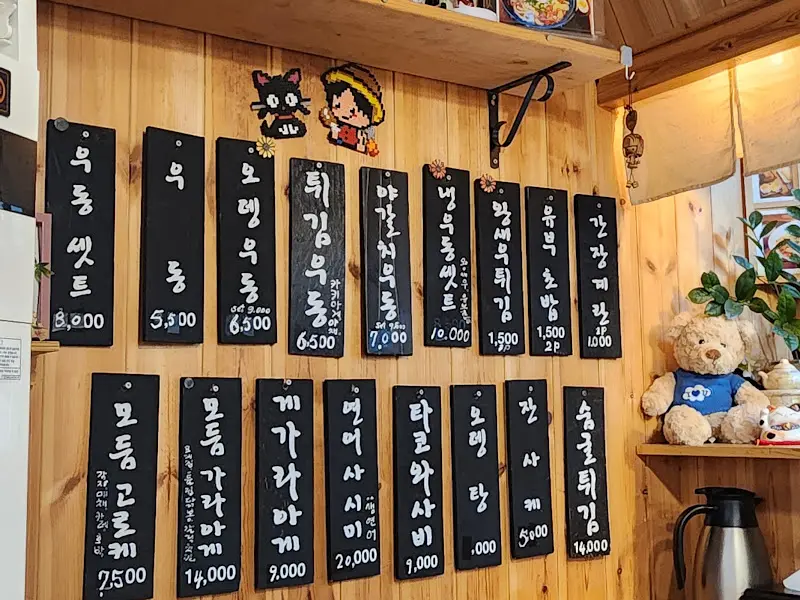 우동셋트
8,000
우동
5,500
오뎅우동
set 9.000
6,500
튀김우동
6.500
야끼우동
7,000
냉우동셋트
10.000
왕새우튀김
1,500
2P
유부초밥
1,500
2P
간장계란
1.000
모듬고로케
7,500
모듬가라아게
14,000
게가라아게
9.000
연어사시미
생연어
20,000
타코와사비
9,000
오뎅탕
,000
잔사케
5,000
숭굴튀김
14,000